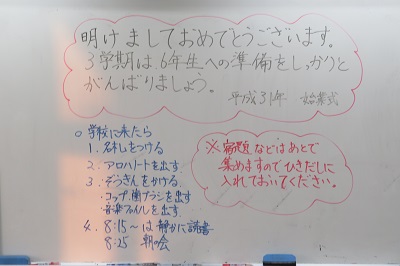 明けましておめでとうございます。
3学期は、6年生への準備をしっかりと
がんばりましょう。
平成31年 始業式
○ 学校に来たら
1. 名札をつける
2. アロハノートを出す
3. ぞうきんをかける
・コップ、歯ブラシを出す
・音楽ファイルを出す
4. 8:15~は静かに読書
8:25 朝の会
※宿題などはあとで
集めますのでひきだしに
入れておいてください。